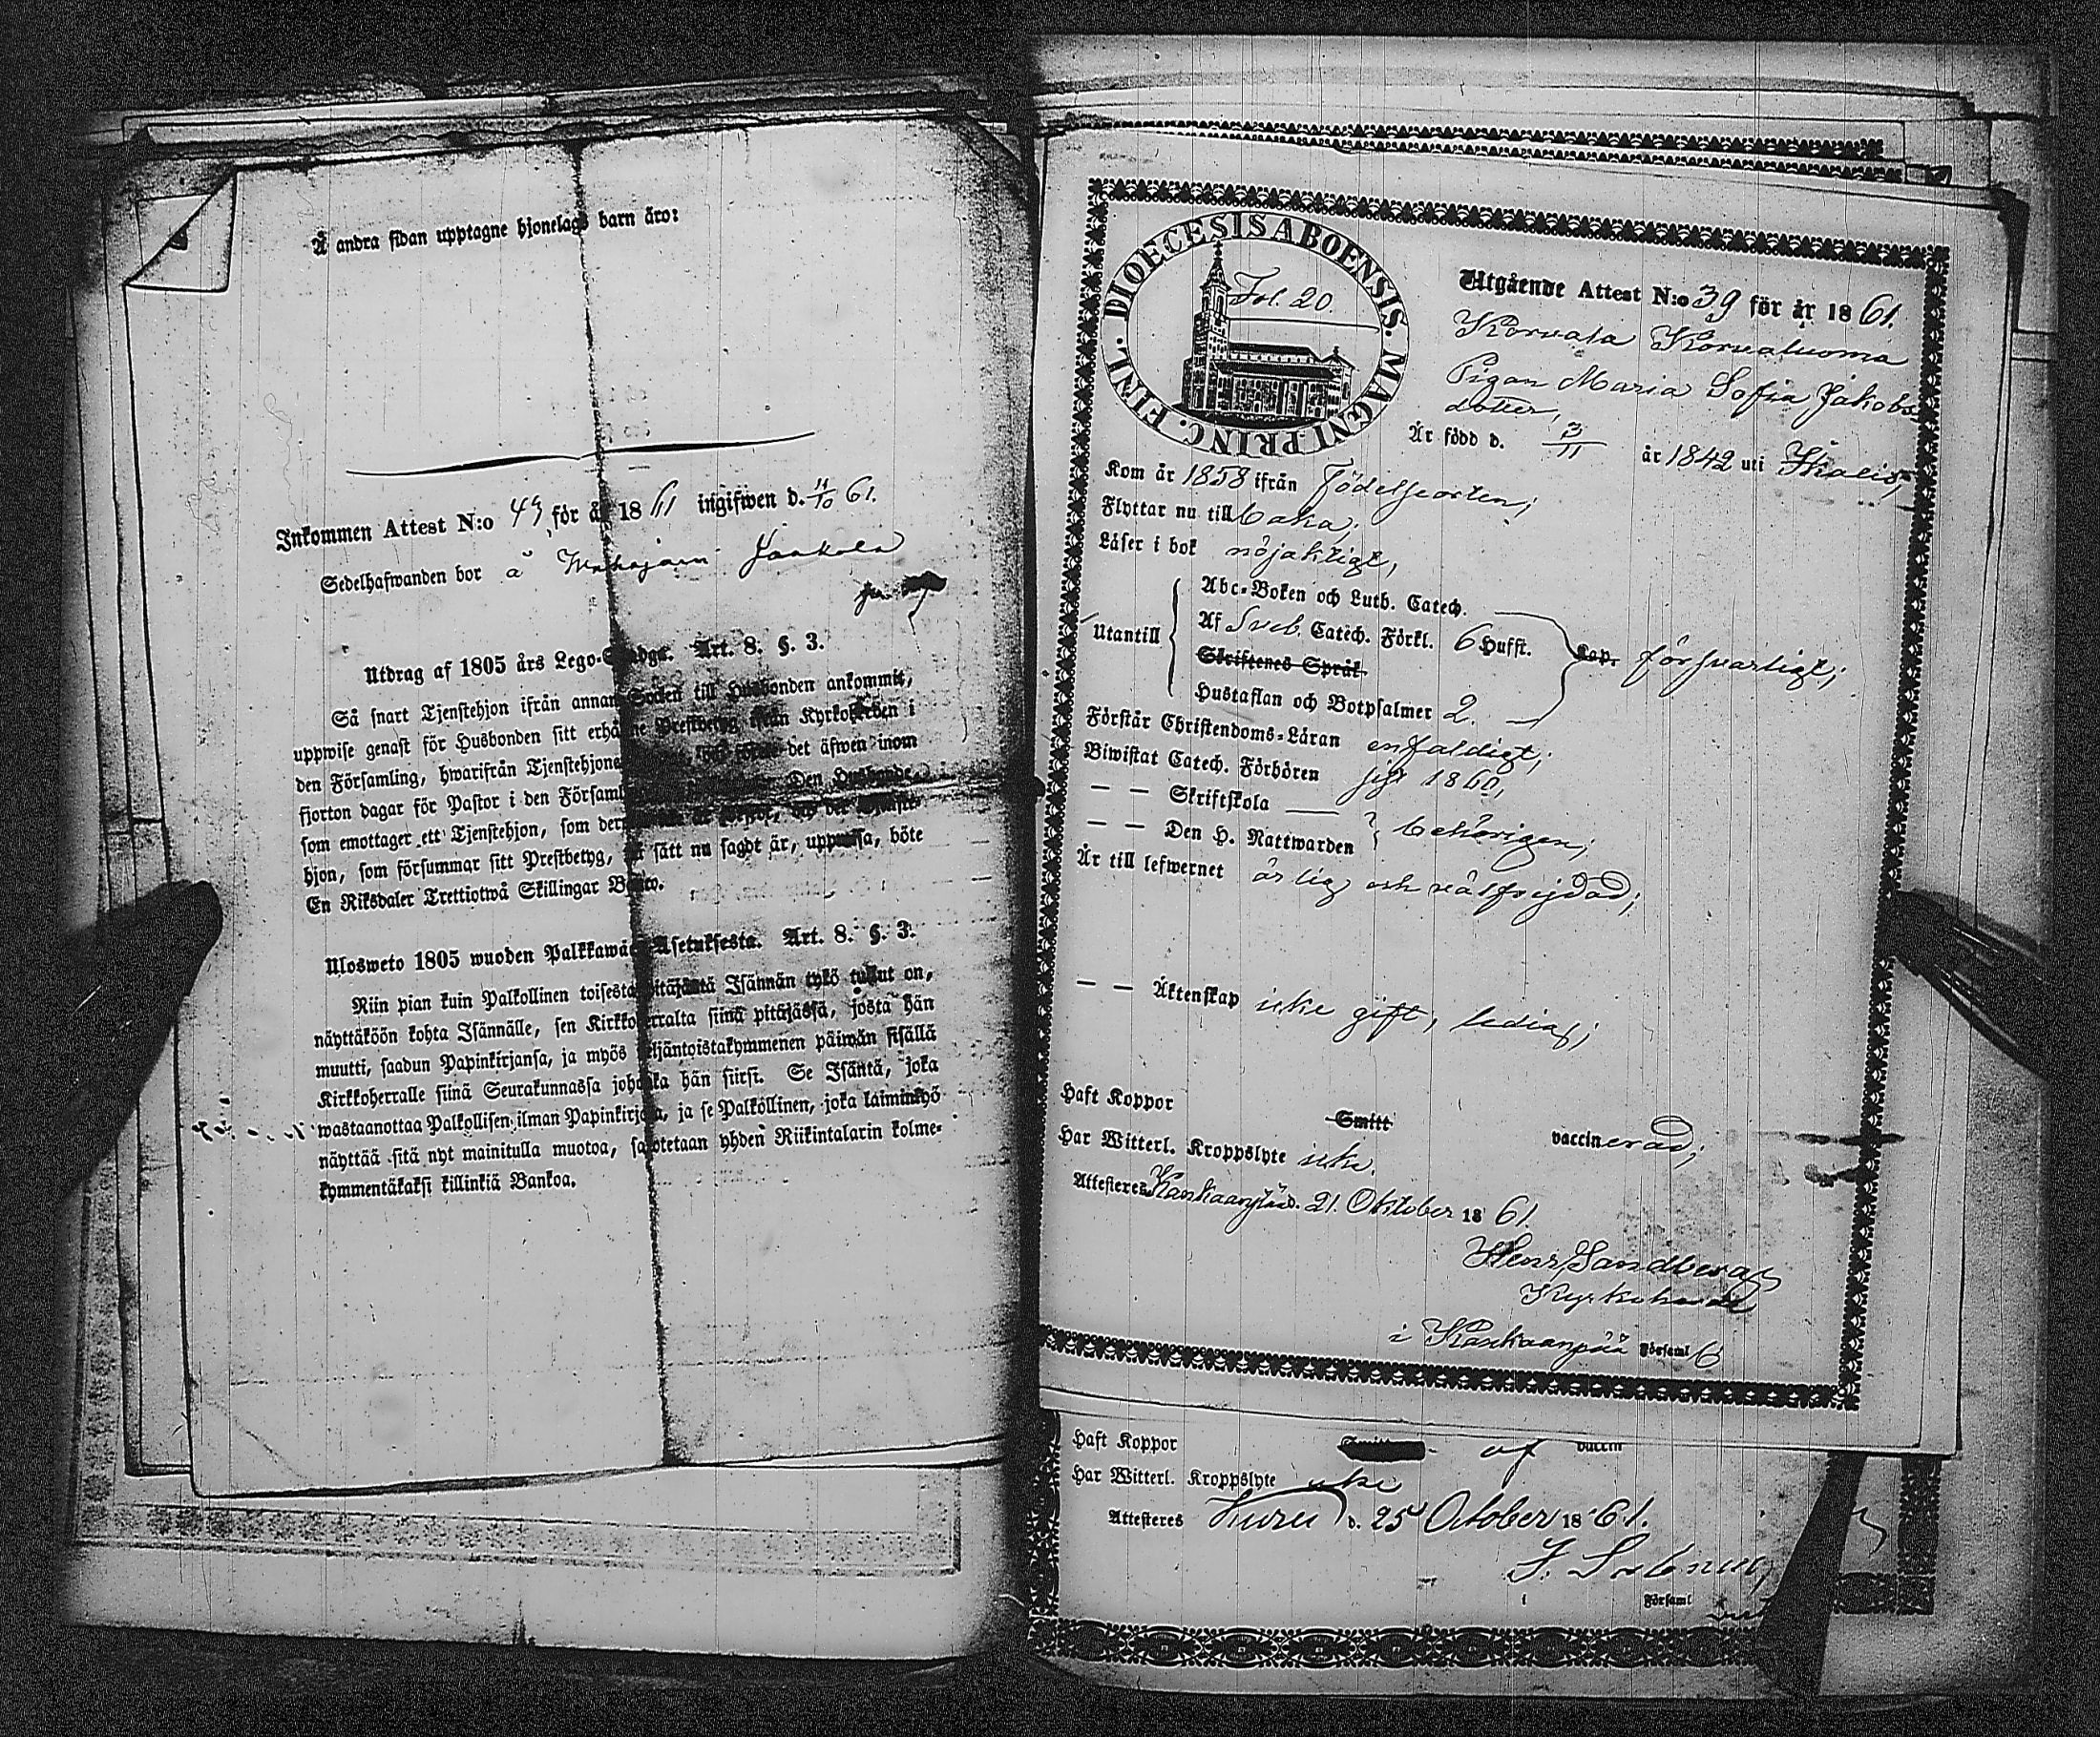 Å andra sidan upptagne hjonelags barn äro:
Inkommen Attest N:o 43 för år 1861 ingifwen d. 11/10 61.
Sedelhafwanden bor å Jaakola
Utdrag af 1805 års Lego-Stadga. Art. 8. §. 3.
Så snart Tjenstehjon ifrån annan Socken till Husbonden ankommit,
uppwise genast för Husbonden sitt erhållne Prestbetyg ifrån Kyrkoherden i
den Församling, hwarifrån Tjenstehjonet det äfwen inom
fjorton dagar för Pastor i den Församling Den Husbonde,
som emottager ett Tjenstehjon, som
hjon, som försummar sitt Prestbetyg, sätt nu sagdt är, uppwisa, böte
En Riksdaler Trettiotwå Skillingar Banco.
Ulosweto 1805 wuoden Palkkawäen Asetuksesta. Art. 8. §. 3.
Niin pian kuin Palkollinen toisesta pitäjästä Isännän tykö tullut on,
näyttäköön kohta Isännälle, sen Kirkkoherralta siinä pitäjässä, josta hän
muutti, saadun Papinkirjansa, ja myös neljäntoistakymmenen päiwän sisällä
Kirkkoherralle siinä Seurakunnassa johonka hän siirsi. Se Isäntä, joka
wastaanottaa Palkollisen ilman Papinkirjata, ja se Palkollinen, joka laiminlyö
näyttää sitä nyt mainitulla muotoa, sakotetaan yhden Riikintalarin kolme-
kymmentäkaksi killinkiä Bankoa.
DIOECESIS ABOENSIS. MAGNI PRINC. FINL.
Fol. 20.
Utgående Attest N:o 39 för år 1861.
Korvala Korvaluoma
Pigan Maria Sofia Jakobs
dotter,
Är född d. 3/11 år 1842 uti Ikalis,
Kom år 1858 ifrån Födelseorten;
Flyttar nu tillbaka;
Läser i bok nöjaktligt,
Utantill
Abc-Boken och Luth. Catech.
Af Sveb. Catech. Förkl. 6 Hufst. Cap. försvarligt;
Skriftenes Språk
Hustaflan och Botpsalmer 2.
Förstår Christendoms-Läran enfaldigt;
Biwistat Catech. Förhören sist 1860,
— — Skriftskola
— — Den H. Nattwarden behörigen;
Är till lefwernet ärlig och välfrejdad;
— — Äktenskap icke gift, ledig;
Haft Koppor Smitt vaccinerad;
Har Witterl. Kroppslyte icke.
Attesteres Kankaanpää d. 21 Oktober 1861.
Henr Sandberg
Kyrkoherde
i Kankaanpää Församl
Haft Koppor af vaccin
Har Witterl. Kroppslyte icke
Attesteres Kuru d. 25 October 1861.
Församl